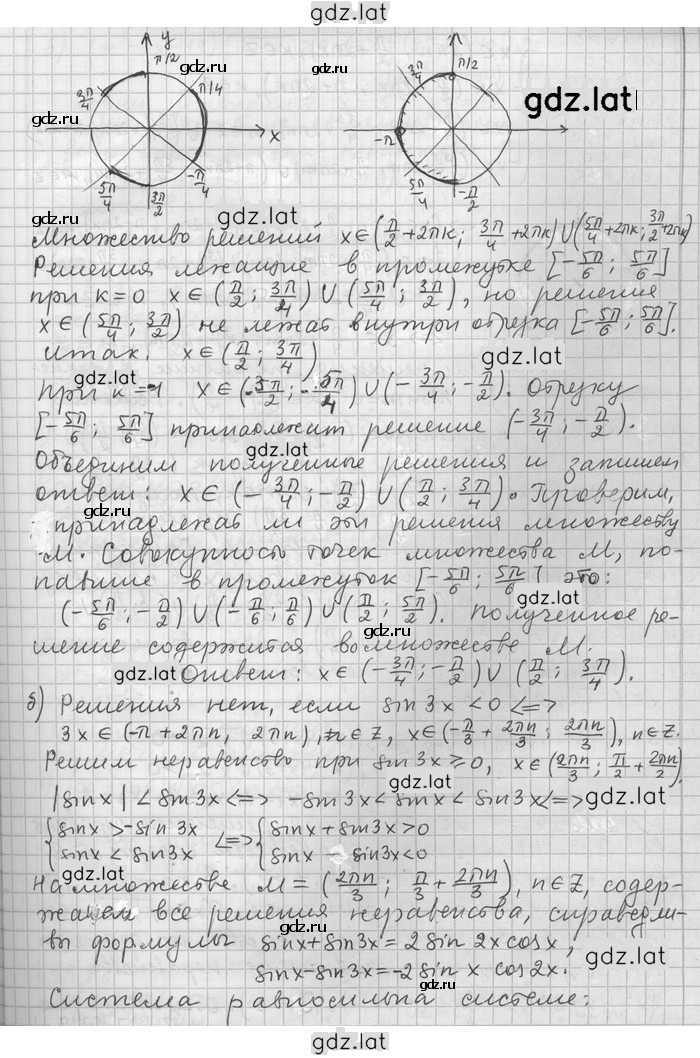 gdz.lat
y
π/2
π/2
gdz.ru
3π/4
π/4
3π/4
gdz.lat
x
-π
gdz.ru
5π/4
3π/2
-π/4
5π/4
-π/2
gdz.lat
Множество решений x∈(π/2+2πк; 3π/4+2πк)∪(5π/4+2πк; 3π/2+2πк)
Решения лежащие в промежутке [-5π/6; 5π/6]
при к=0 x∈(π/2; 3π/4)∪(5π/4; 3π/2), но решения
x∈(5π/4; 3π/2) не лежат внутри отрезка [-5π/6; 5π/6].
gdz.lat
итак. x∈(π/2; 3π/4)
gdz.lat
При к=-1 x∈(-3π/2; -5π/4)∪(-3π/4; -π/2). Отрезку
[-5π/6; 5π/6] принадлежит решение (-3π/4; -π/2).
gdz.lat
Объединим полученные решения и запишем
ответ: x∈(-3π/4; -π/2)∪(π/2; 3π/4). Проверим,
gdz.lat
принадлежат ли эти решения множеству
M. Совокупность точек множества M, по-
павшие в промежуток [-5π/6; 5π/6] это:
gdz.lat
(-5π/6; -π/2)∪(-π/6; π/6)∪(π/2; 5π/2). Полученное ре-
gdz.ru
шение содержится во множестве M.
gdz.lat Ответ: x∈(-3π/4; -π/2)∪(π/2; 3π/4).
б) Решения нет, если sin3x<0 <=>
3x∈(-π+2πn, 2πn), n∈Z, x∈(-π/3+2πn/3; 2πn/3), n∈Z.
Решим неравенство при sin3x≥0, x∈(2πn/3; π/2+2πn/2).
gdz.lat
|sinx|<sin3x<=> -sin3x<sinx<sin3x<=> gdz.lat
{sinx>-sin3x <=> {sinx+sin3x>0
{sinx<sin3x {sinx-sin3x<0
gdz.lat
На множестве M=(2πn/3; π/3+2πn/3), n∈Z, содер-
жащем все решения неравенства, справедли-
вы формулы sinx+sin3x=2sin2xcosx;
gdz.lat
sinx-sin3x=-2sinxcos2x.
gdz.lat
Система равносильна системе:
gdz.lat